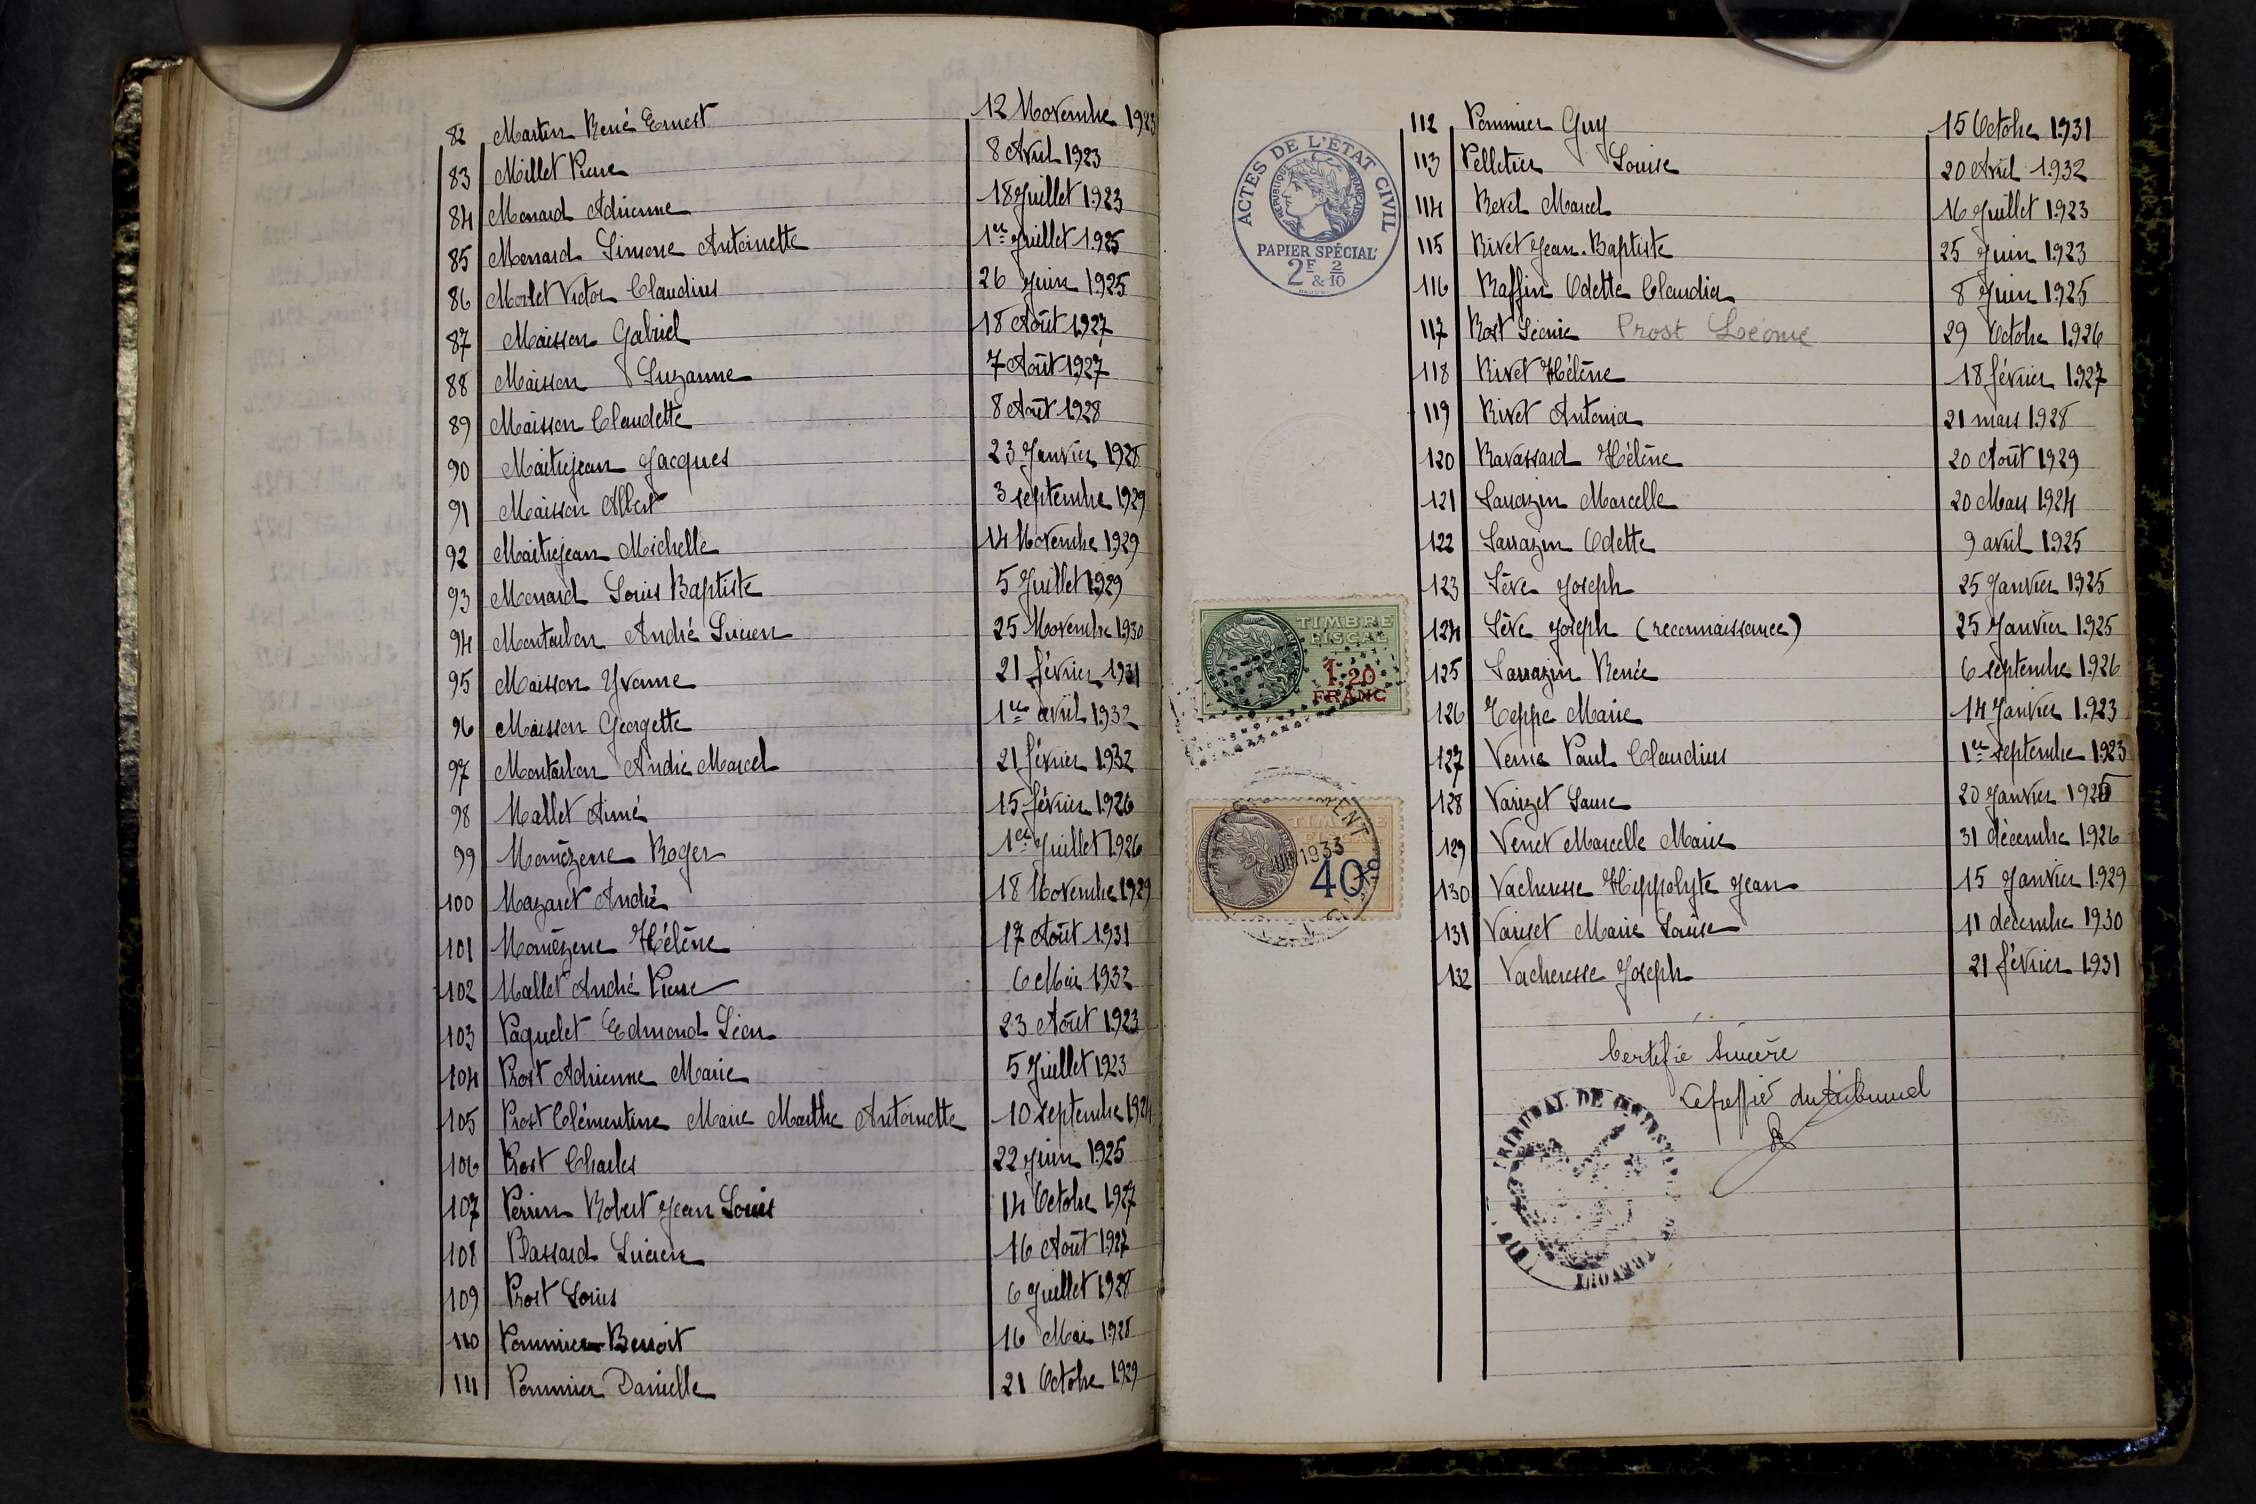 82 Martin René Ernest 12 Novembre 1923
83 Millet Pierre 8 Avril 1923
84 Menard Adrienne 18 Juillet 1923
85 Menard Simone Antoinette 1er Juillet 1925
86 Morlet Victor Claudius 26 Juin 1925
87 Maisson Gabriel 18 Août 1927
88 Maisson Suzanne 7 Août 1927
89 Maisson Claudette 8 Août 1928
90 Maitrejean Jacques 23 Janvier 1928
91 Maisson Albert 3 septembre 1929
92 Maitrejean Michelle 14 Novembre 1929
93 Menard Louis Baptiste 5 Juillet 1929
94 Montarbon André Lucien 25 Novembre 1930
95 Maisson Yvonne 21 février 1931
96 Maisson Georgette 1er avril 1932
97 Montarbon André Marcel 21 février 1932
98 Nallet Aimé 15 février 1926
99 Nomézene Roger 1er Juillet 1926
100 Nazaret André 18 Novembre 1929
101 Nomézene Hélène 17 Août 1931
102 Nallet André Pierre 6 Mai 1932
103 Paquelet Edmond Léon 23 Août 1923
104 Prost Adrienne Marie 5 Juillet 1923
105 Prost Clémentine Marie Marthe Antoinette 10 septembre 1924
106 Prost Charles 22 Juin 1925
107 Perrin Robert Jean Louis 14 Octobre 1927
108 Plassard Lucien 16 Août 1927
109 Prost Louis 6 Juillet 1928
110 Pommier Benoit 16 Mai 1928
111 Pommier Danielle 21 Octobre 1929
112 Pommier Guy 15 Octobre 1931
113 Pelletier Louise 20 Avril 1932
114 Revel Marcel 16 Juillet 1923
115 Rivet Jean-Baptiste 25 Juin 1923
116 Raffin Odette Claudia 8 Juin 1925
117 Rost Léonie Prost Léonie 29 Octobre 1926
118 Rivet Hélène 18 février 1927
119 Rivet Antonia 21 mars 1928
120 Ravassard Hélène 20 Août 1929
121 Sarrazin Marcelle 20 Mars 1924
122 Sarrazin Odette 9 avril 1925
123 Sève Joseph 25 Janvier 1925
124 Sève Joseph (reconnaissance) 25 Janvier 1925
125 Sarrazin Renée 6 septembre 1926
126 Teppe Marie 14 Janvier 1923
127 Verne Paul Claudius 1er septembre 1923
128 Varizet Laure 20 Janvier 1925
129 Venet Marcelle Marie 31 décembre 1926
130 Vacheresse Hippolyte Jean 15 Janvier 1929
131 Variset Marie Louise 11 décembre 1930
132 Vacheresse Joseph 21 février 1931
Certifié sincère
Le greffier du tribunal
ACTES DE L'ÉTAT CIVIL
RÉPUBLIQUE FRANÇAISE
PAPIER SPÉCIAL
2F & 2/10
TIMBRE
FISCAL
1.20
FRANC
TIMBRE
FISCAL
1933
40c
TRIBUNAL DE
TREVOUX